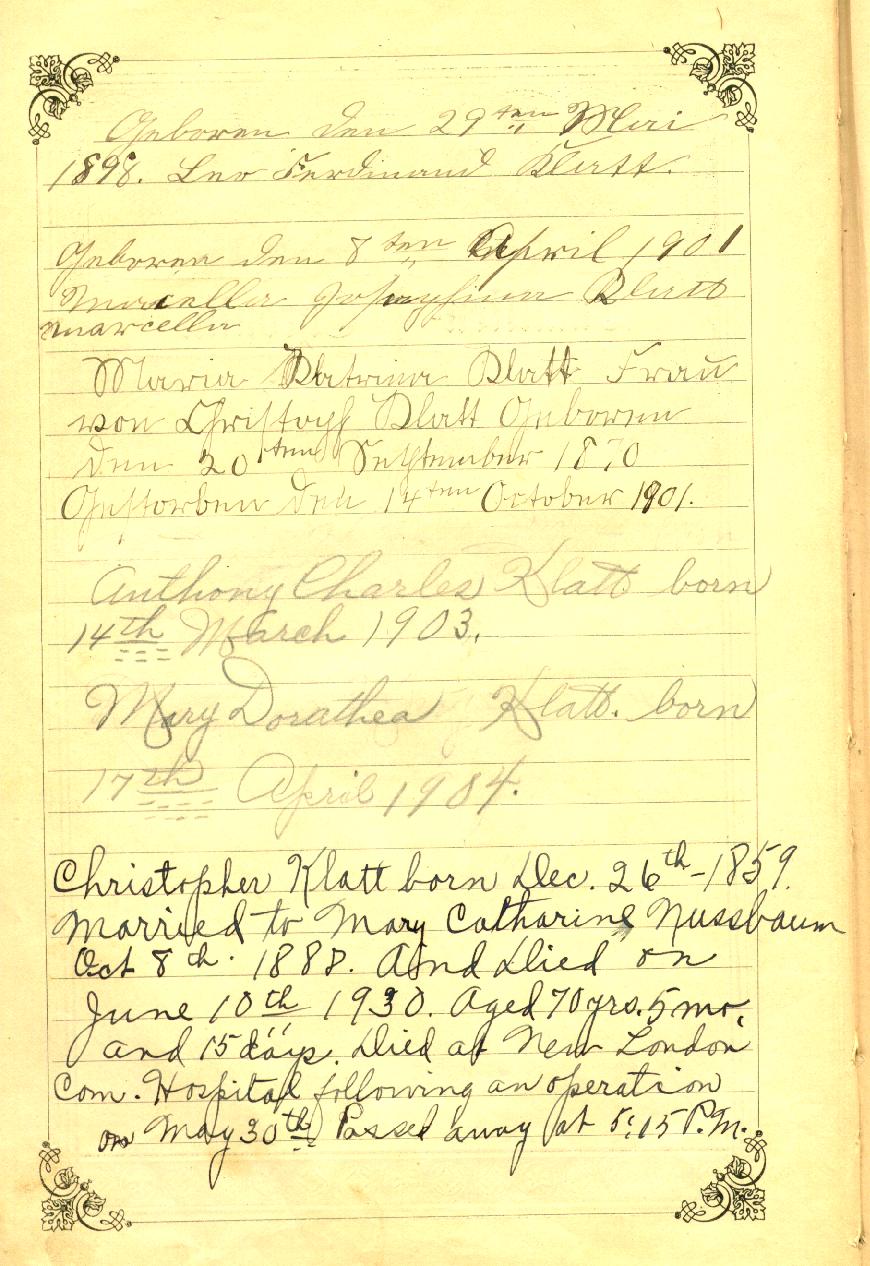 Geboren den 29ten Mai
1898. Leo Ferdinand Klatt.
Geboren den 8ten April 1901
Marcella Josephina Klatt
marcella
Maria Katrina Klatt Frau
von Christoph Klatt Geboren
den 20ten September 1870
Gestorben den 14ten October 1901.
Anthony Charles Klatt born
14th March 1903.
Mary Dorathea Klatt. born
17th April 1904.
Christopher Klatt born Dec. 26th-1859.
Married to Mary Catharine Nussbaum
Oct 8th. 1888. And Died on
June 10th 1930. Aged 70 yrs. 5 mo,
and 15 days. Died at New London
Com. Hospital following an operation
on May 30th. Passed away at 5:15 P.M.